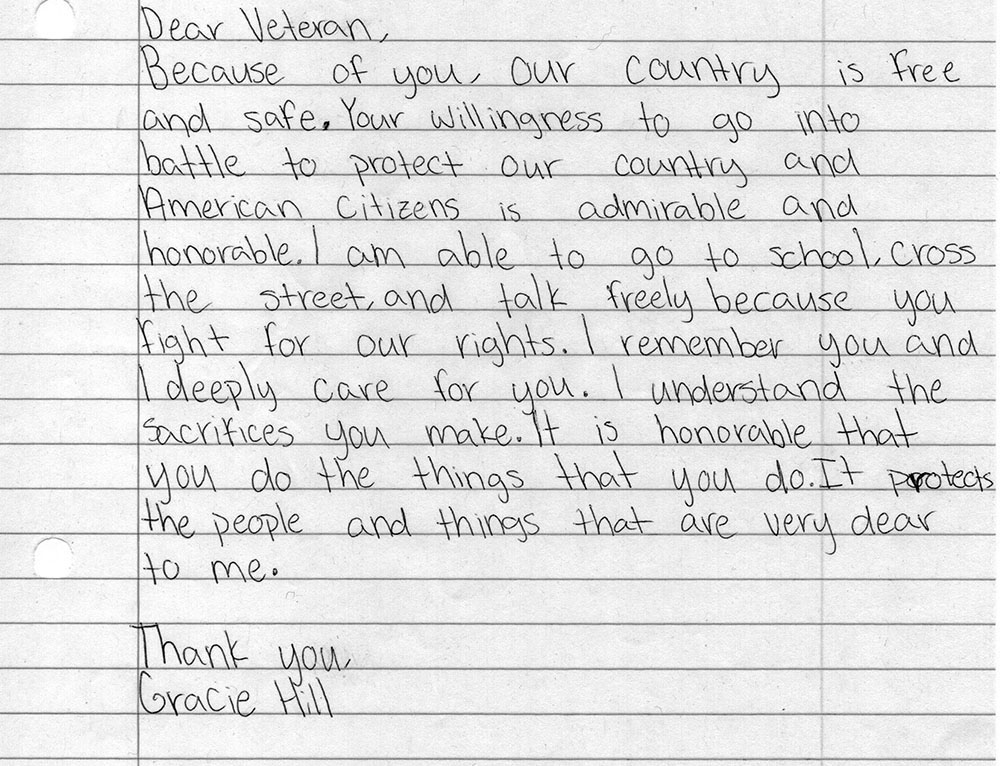 Dear Veteran,
Because of you, our country is free
and safe. Your willingness to go into
battle to protect our country and
American citizens is admirable and
honorable. I am able to go to school, cross
the street, and talk freely because you
fight for our rights. I remember you and
I deeply care for you. I understand the
sacrifices you make. It is honorable that
you do the things that you do. It protects
the people and things that are very dear
to me.
Thank you,
Gracie Hill